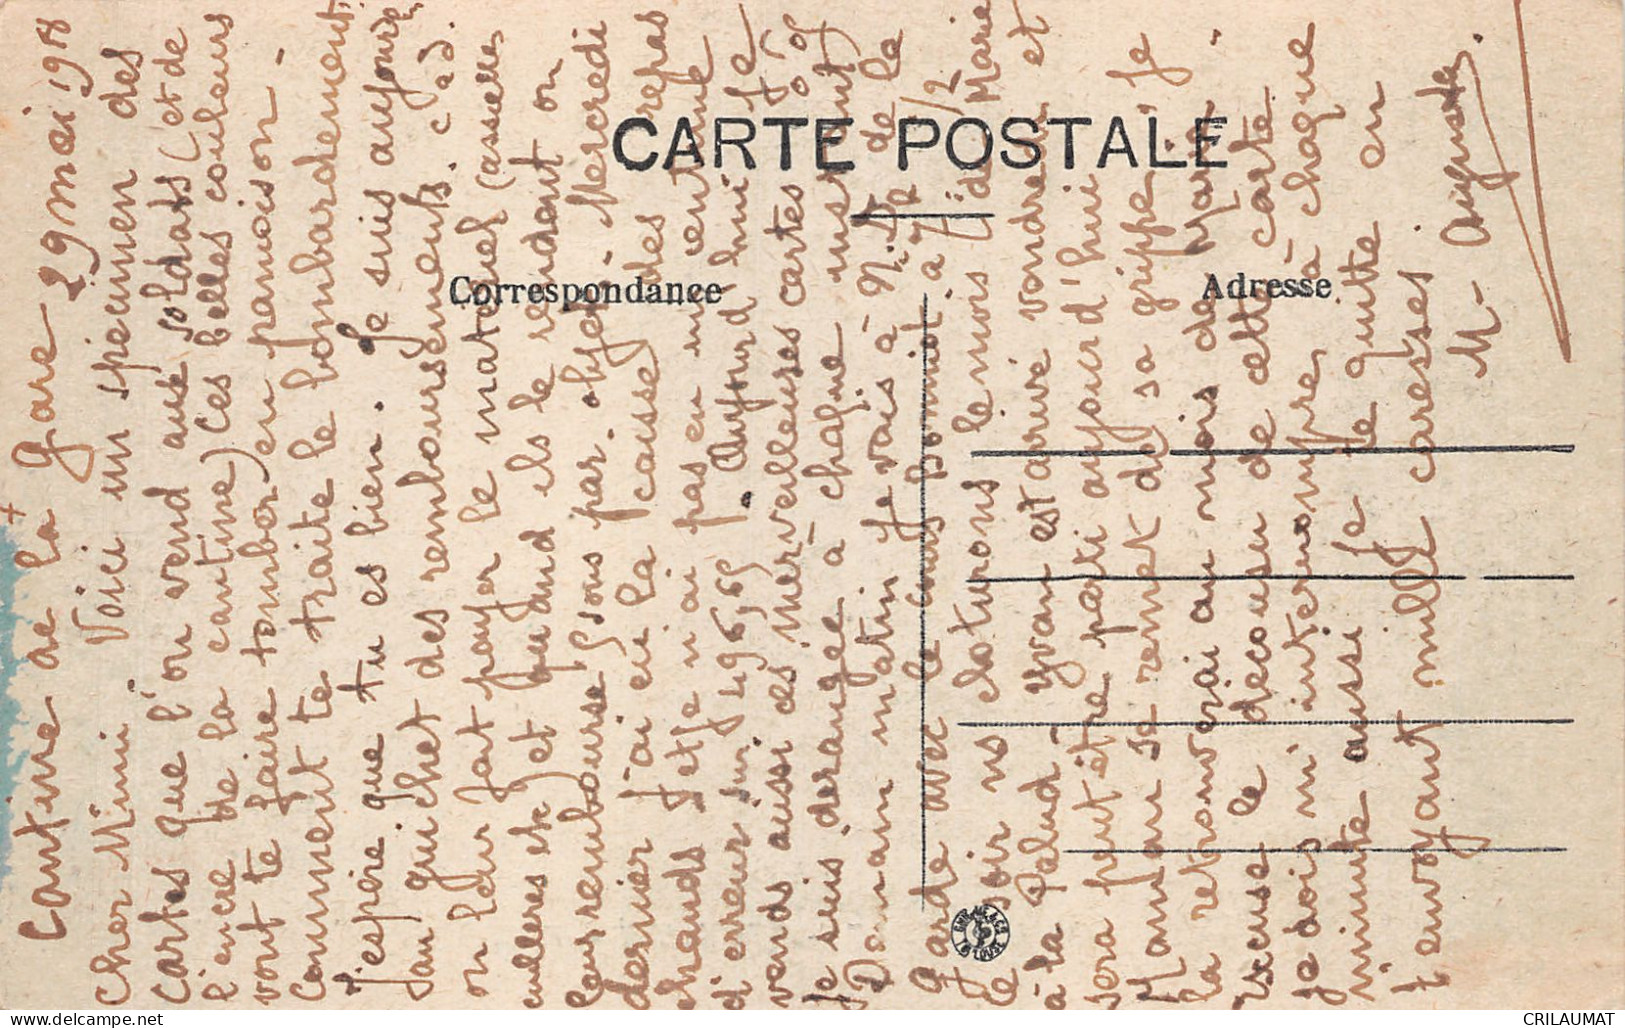 Cantine de la Gare 29 mai 1918
Cher Mimi. Voici un specimen des
Cartes que l'on vend aux soldats (et de
l'encre de la cantine) Ces belles couleurs
vont te faire tomber en pamoison -
Comment te traite le bombardement.
J'espère que tu es bien. Je suis aujourd'h
au guichet des remboursements. c. a d.
on leur fait payer le materiel (assiettes
cuilleres etc) et quand ils le rendent on
leur rembourse 5 sous par objet - Mercredi
dernier j'ai eu la caisse des repas
chauds et je n'ai pas eu un centime
d'erreur sur 496,65. Aujourd'hui je
vends aussi ces merveilleuses cartes 0f05
Je suis derangée à chaque instant
Demain matin je vais à N. D. de la
Garde avec le
Ce soir ns cloturons le mois de Marie
à la Palud. Yvan est arrivé vendredi et
sera peut être parti aujourd'hui
Maman se remet de sa grippe, je
la retrouverai au mois de Mars -
Excuse le decousu de cette carte
je dois m'interrompre à chaque
minute aussi je te quitte en
t'envoyant mille caresses
M - Augusta
CARTE POSTALE
Correspondance
Adresse
CRILAUMAT